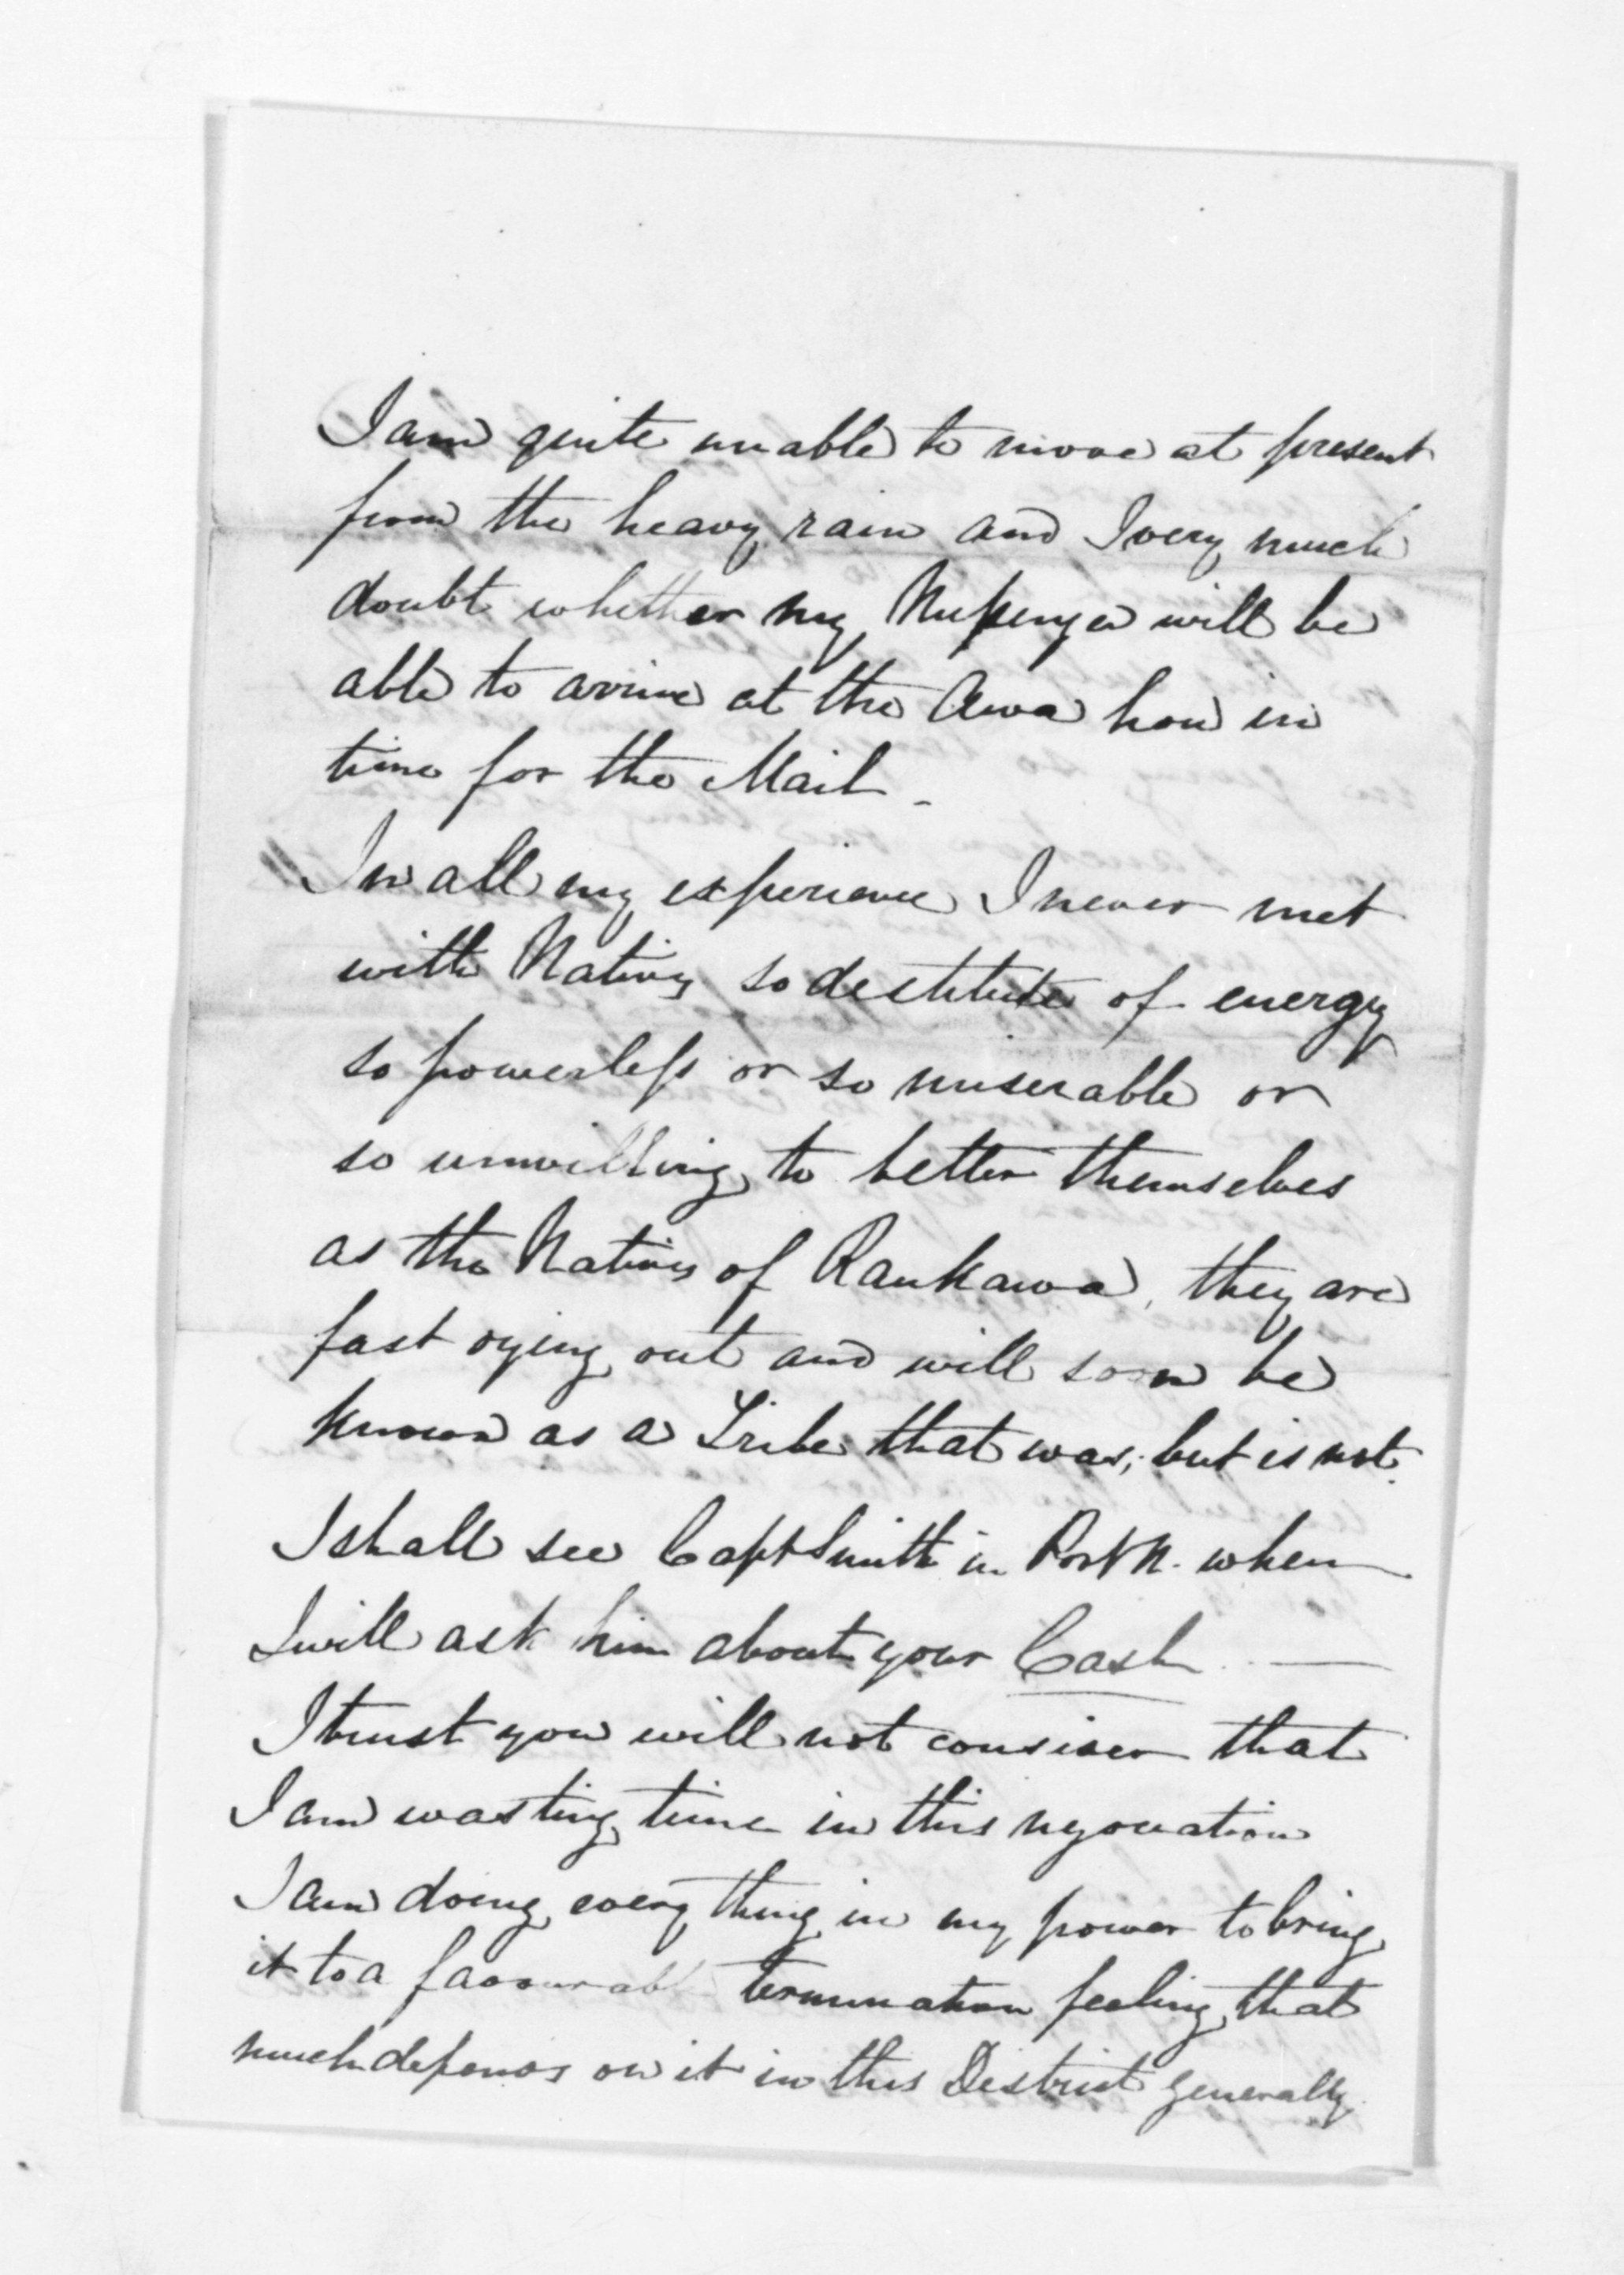 I am quite unable to move at present
from the heavy rain and I very much
doubt whether my Messenger will be
able to arrive at the Awa hou in
time for the Mail -
In all my experience I never met
with Natives so destitute of energy
so powerless or so miserable or
so unwilling to better themselves
as the Natives of Raukawa, they are
fast dying out and will soon be
known as a Tribe that was, but is not.
I shall see Capt Smith in Port N. when
I will ask him about your Cash —
I trust you will not consider that
I am wasting time in this negociation
I am doing every thing in my power to bring
it to a favourable termination feeling that
much depends on it in this District generally.